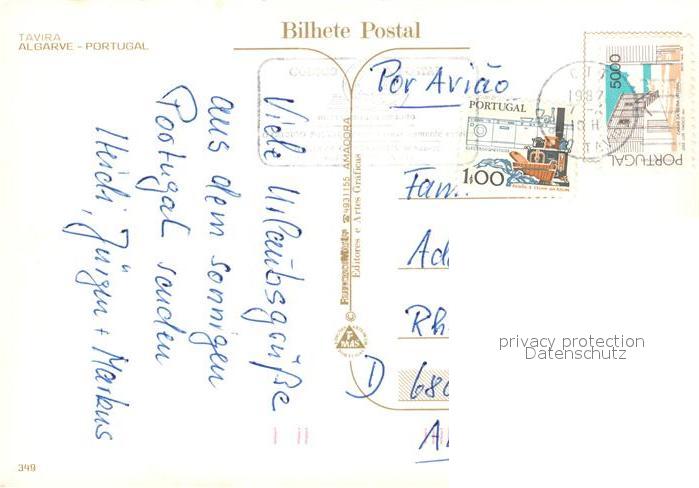 TAVIRA
ALGARVE - PORTUGAL
Bilhete Postal
Por Avião
PORTUGAL
1$00
5000
PORTUGAL
1987
Viele Urlaubsgrüße
aus dem sonnigen
Portugal senden
Heidi, Jürgen + Markus
☎ 9331155 AMADORA
Editores e Artes Gráficas
Fam.
Ad
Rh
D 680
privacy protection
Datenschutz
349